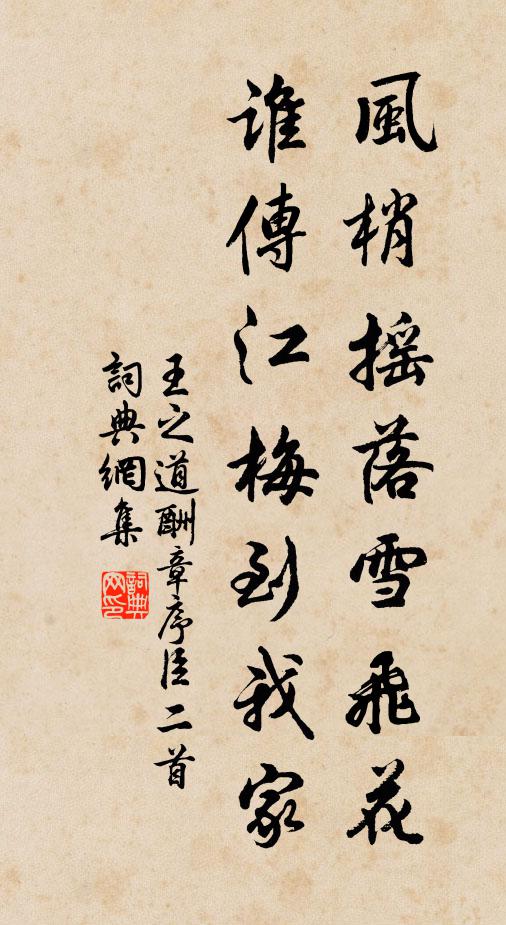 風梢搖落雪飛花
誰傳江梅到我家
王之道酬章序臣二首
詞典網集
詞典
网印